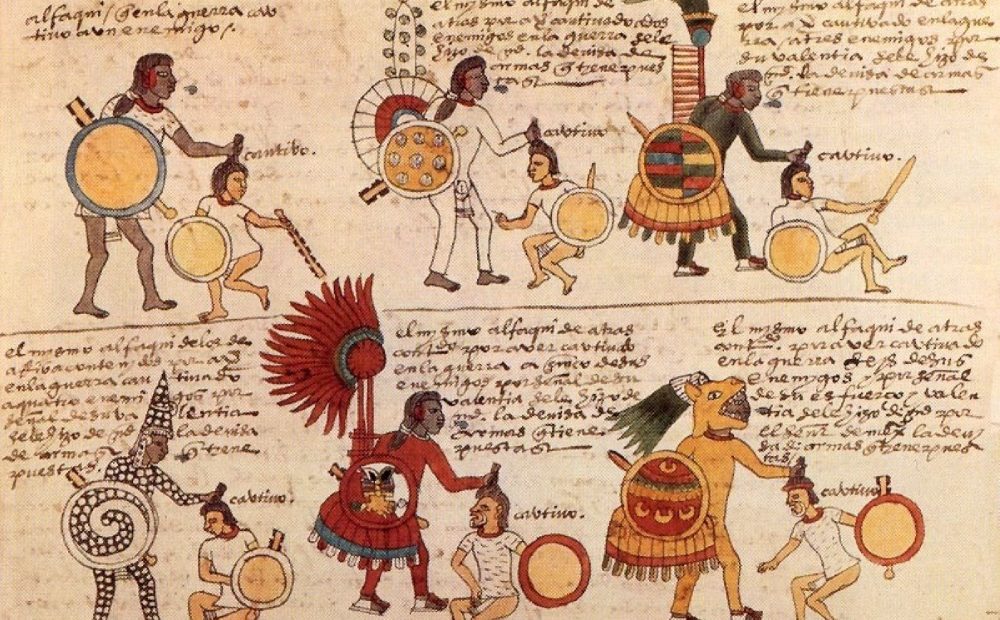 alfaqui / q̃ en la guerra cau
tivo a un enemigo /.
cautivo.
el mysmo alfaqui de
atras por aver cautivado dos
enemigos en la guerra sele
hizo de md. la devisa de
armas q̃ tiene pues
tas /
cautivo
el mysmo alfaqui de atras
por aver cautivado en la gue
rra / a tres enemigos por
su valentia sele hizo de
md. la devisa de armas
q̃ tiene puestas /
cautivo.
el mismo alfaqui de los de
atras
en la guerra cautivado
a quatro enemigos por
señal de su valentia
sele hizo de md la devisa
de armas q̃ tiene
puestas /
cautivo.
el mysmo alfaqui de atras
contdo por aver cautivado
en la guerra a cinco de sus
enemigos por señal de su
valentia sele hizo de
md. la devisa de
armas q̃ tiene
puestas /
cautivo.
El mismo alfaqui de atras
contdo / por aver cautivado
en la guerra seys de sus
enemigos / y por señal
de su esfuerço / y valen
tia sele hizo de md por
el señor de la devi
sa de armas q̃ tiene pues
tas /
cautivo